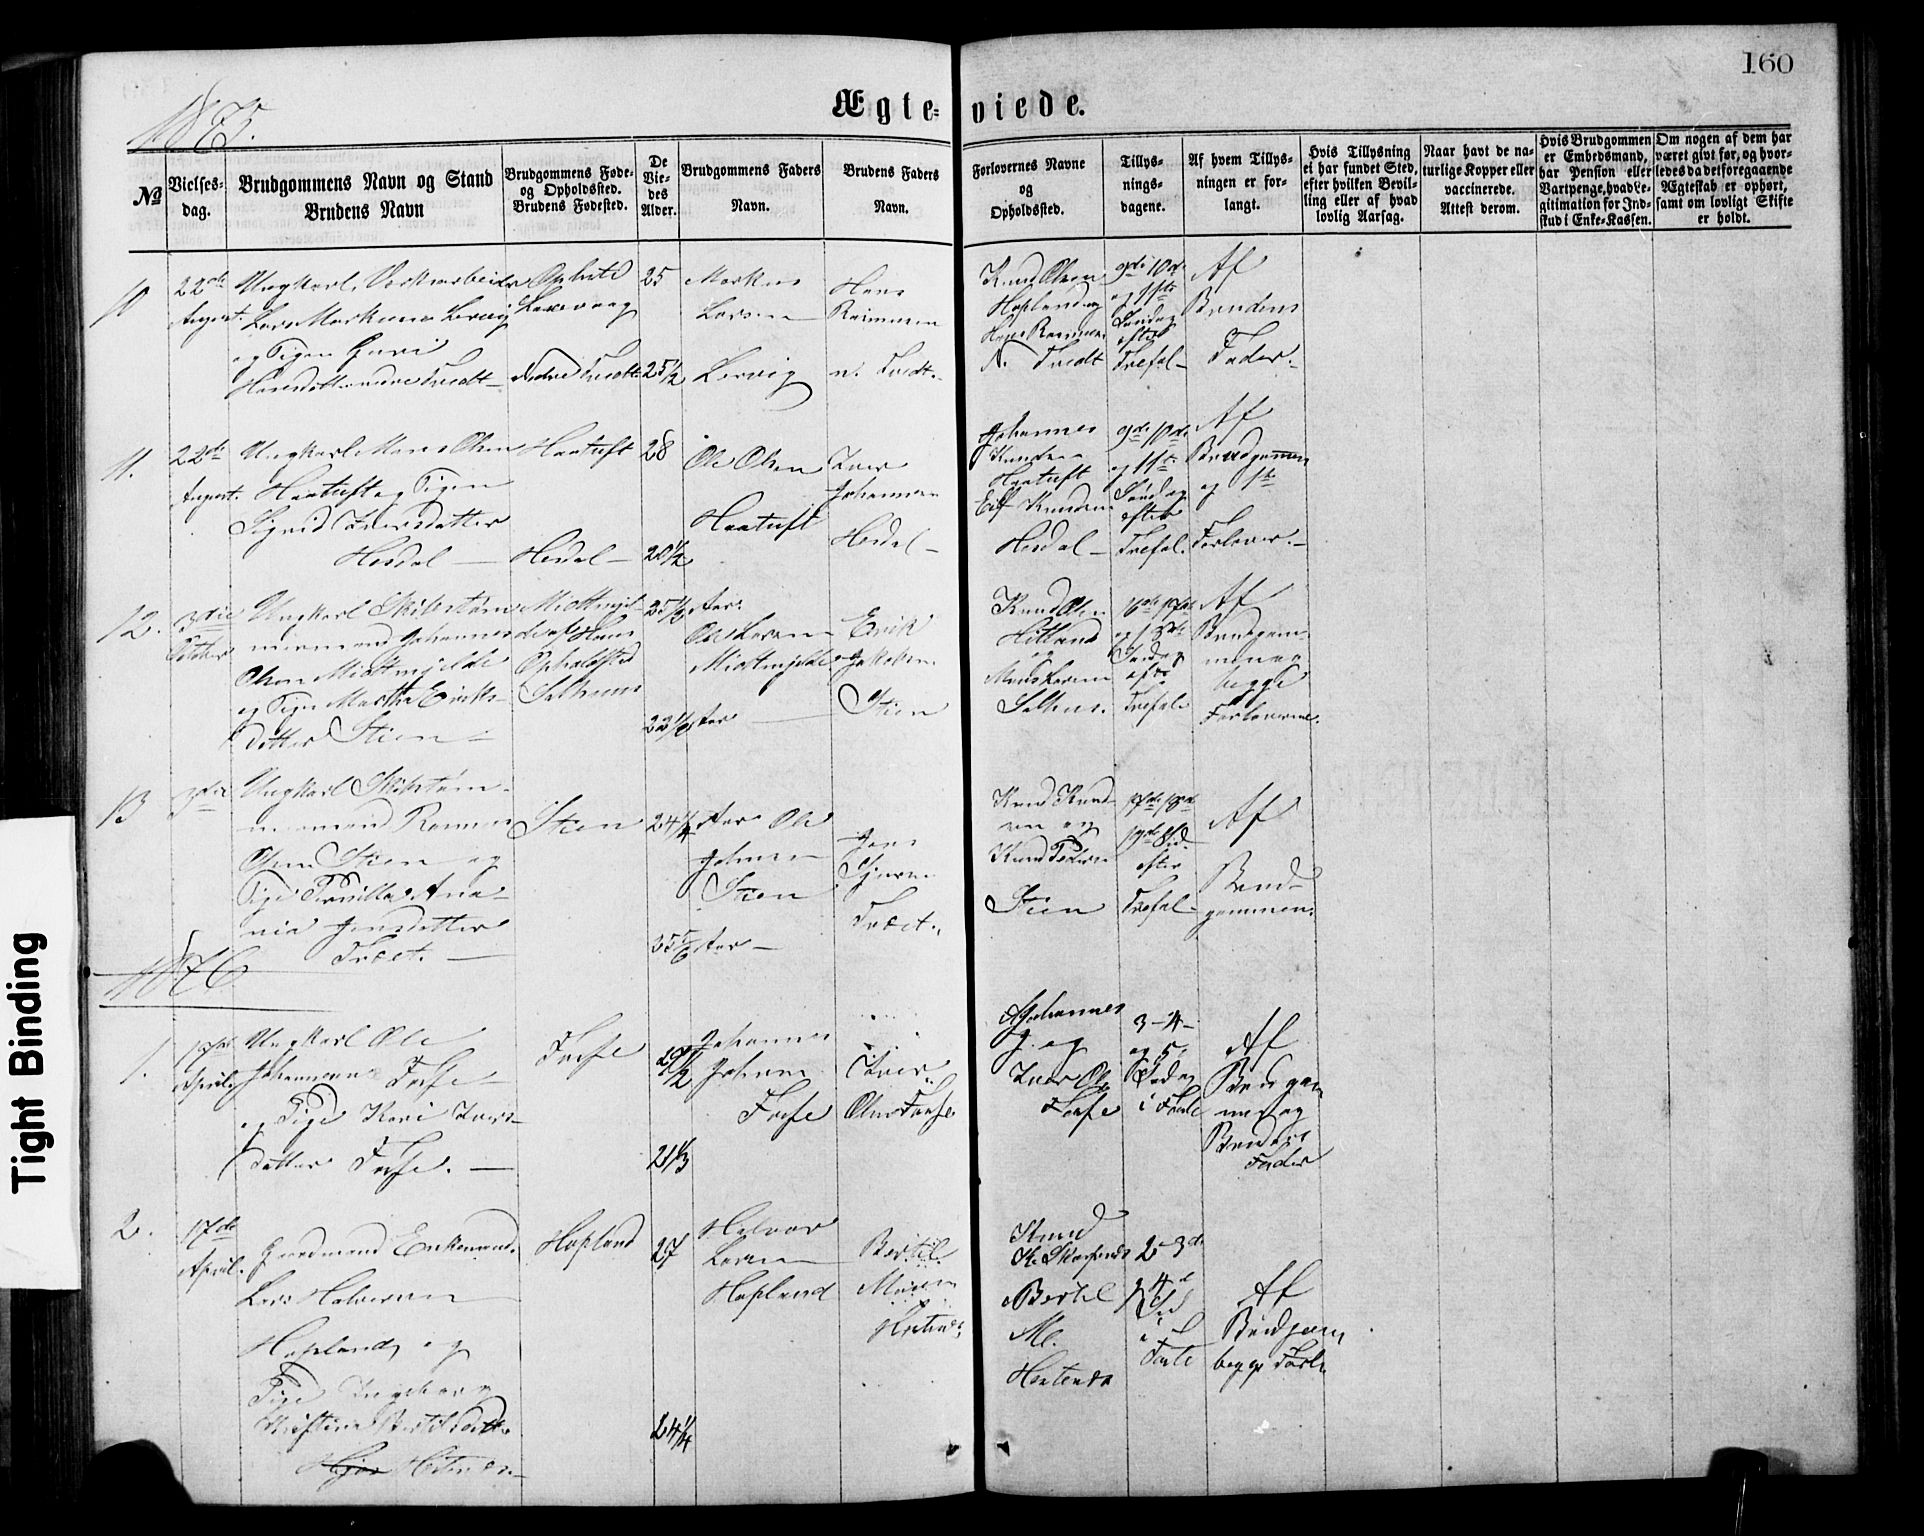 160
1875.
Ægte- viede.
No
Vielses-
dag.
Brudgommens Navn og Stand
Brudens Navn
Brudgommens Føde-
og Opholdssted.
Brudens Fødested.
De
Vie-
des
Alder.
Brudgommens Faders
Navn.
Brudens Faders
Navn.
Forlovernes Navne
og
Opholdssted.
Tillys-
nings-
dagene.
Af hvem Tillys-
ningen er for-
langt.
Hvis Tillysning
ei har fundet Sted,
efter hvilken Bevil-
ling eller af hvad
lovlig Aarsag.
Naar havt de na-
turlige Kopper eller
vaccinerede.
Attest derom.
Hvis Brudgommen
er Embedsmand,
har Pension eller
Vartpenge, hvad Le-
gitimation for Ind-
skud i Enke-Kassen.
Om nogen af dem har
været givt før, og hvor-
ledes da det foregaaende
Ægteskab er ophørt,
samt om lovligt Skifte
er holdt.
10
22de
August.
Ungkarl
Lars Markusen Lervig
og Pigen Guri
Hansdatter nedre Tvedt
Nedre Tvedt
25
25 1/2
Markus
Larsen
Lervig
Hans
Rasmusen
n. Tvedt.
Knud Olsen
Hopland og
Hans Rasmusen
N. Tvedt
9de 10de
og 11te
Søndag
efter
Trefol.
Af
Brudens
Fader.
11.
22de
August.
Ungkarl Mons Olsen
Haatuft og Pigen
Sigrid Iversdatter
Hesdal
Haatuft
Hesdal
28
20 1/2
Ole Olsen
Haatuft
Iver
Johannesen
Hesdal
Johannes
Knudsen
Haatuft
Knudsen
Hesdal
9de 10de
og 11te
Søndag
efter
Trefol.
Af
Brudgommen
og 1ste
Forlover.
12.
3die
October
Ungkarl Skibstøm-
mermand Johannes
Olsen Midtmjelde
og Pige Martha Eriks-
datter Stien
Opholdssted
Salhus
25 1/2 Aar
22 1/6 Aar
Ole Larsen
Midtmjelde
Erik
Jakobsen
Stien
Knud Olsen
og
Salhus.
16de 17de
og 18de
Søndag
eft.
Trefol.
Af
Brudgom-
men og
begge
Forloverne.
13
3die
Ungkarl Skibstøm-
mermand Rasmus
Olsen Stien og
Pige Pernilla Ana-
nia Jensdatter
Træet.
Stien
24 1/4 Aar
25 5/6 Aar
Ole
Johnsen
Stien
Jens
Træet.
Knud Knud-
sen og
Knud Peders.
Stien
17de 18de
19de Sød.
efter
Trefol.
Af
Brud-
gommen.
1876
1.
17de
April
Ungkarl Ole
Johannesen Fosse
og Pige Kari Ivers-
datter Fosse.
Fosse
27 1/2
21 1/3
Johannes
Johnsen
Fosse
Iver
Olsen Fosse
Johannes
J. og
Iver Ols.
Fosse
3-4-
og 5.
Sødag
i Faste
Af
Brudgom-
men og
Brudens
Fader
2.
17de
April.
Gaardmand Enkemand
Lars Halvorsen
Hopland og
Pige Ingeborg
Kristine Bertilsdatter
Hopland
27
24 1/4
Halvor
Larsen
Hopland
Bertil
Knud
Bertil
M.
2-3de
4de
Sød
i
Faste
Af
Brudgom
begge Forl.
Tight Binding